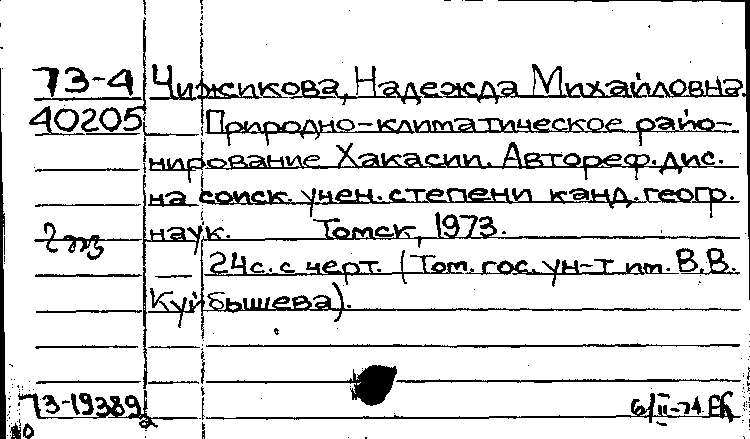 73-4 Чижикова, Надежда Михайловна.
40205 Природно-климатическое райо-
нирование Хакасии. Автореф. дис.
на соиск. учен. степени канд. геогр.
наук. Томск, 1973.
24 с. с черт. (Том. гос. ун-т им. В.В.
Куйбышева).
73-19389а 6/II-74